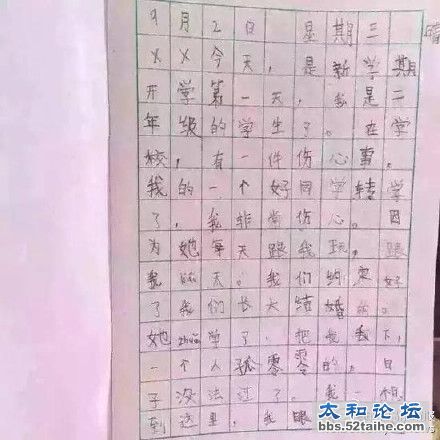 9月2日 星期三 晴
XX今天，是新学期
开学第一天，我是二
年级的学生了。在学
校，有一件伤心事。
我的一个好同学转学
了，我非常伤心。因
为她每天跟我玩，跟
我聊天。我们约定好
了我们长大结婚的。
她zhuǎn学了，把我丢下，
一个人孤零零的。日
子没法过了。我一想
到这里，我眼
太和论坛
bbs.52taihe.com